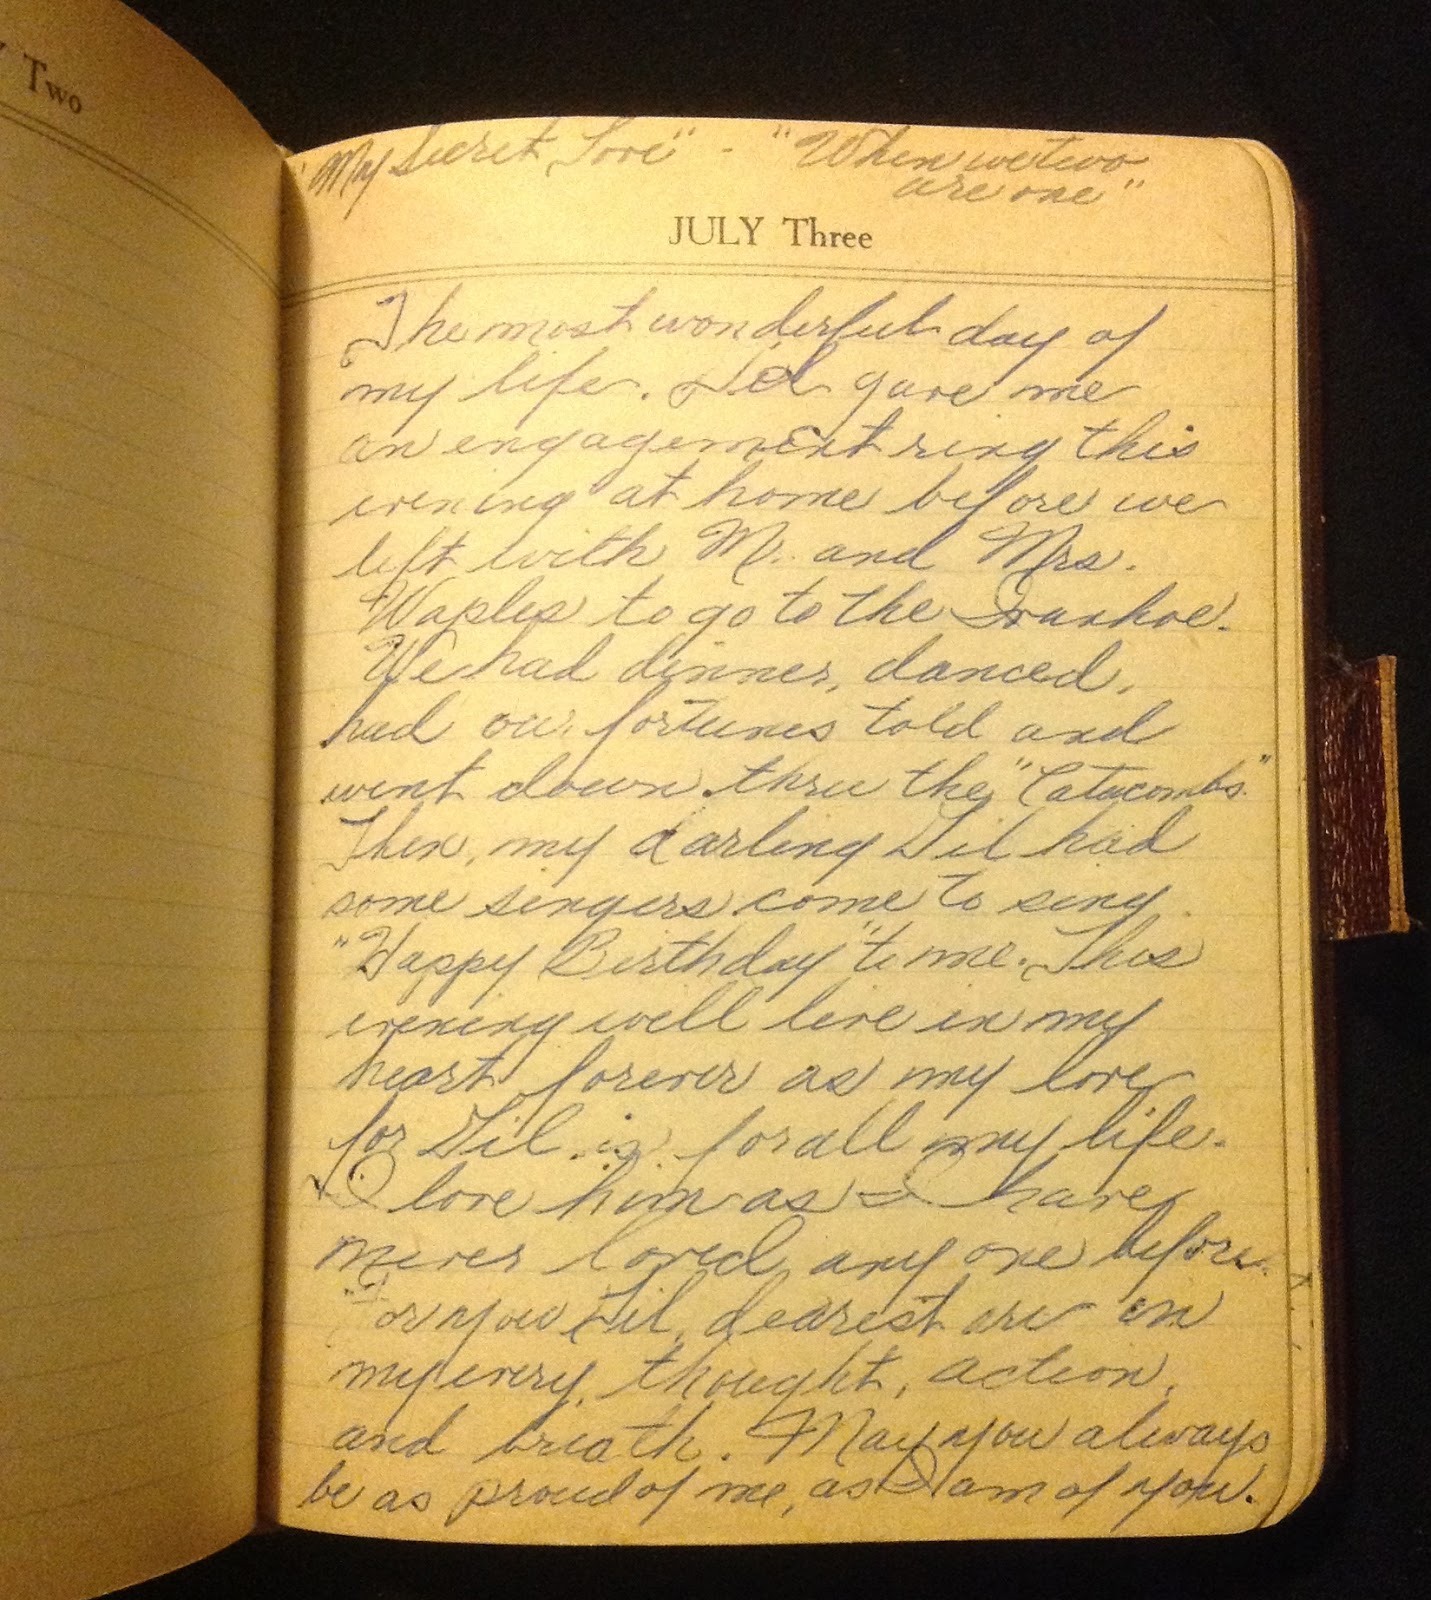 Y Two
"My Secret Love" - "When we two
are one"
JULY Three
The most wonderful day of
my life. Sil gave me
an engagement ring this
evening at home before we
left with Mr. and Mrs.
Waples to go to the Ivanhoe.
We had dinner, danced,
had our fortunes told and
went down thru the "Catacombs"
Then, my darling Sil had
some singers come to sing
"Happy Birthday" to me. This
evening will live in my
heart forever as my love
for Sil is for all my life.
I love him as I have
never loved any one before.
For you Sil, dearest are in
my every thought, action,
and breath. May you always
be as proud of me, as I am of you.